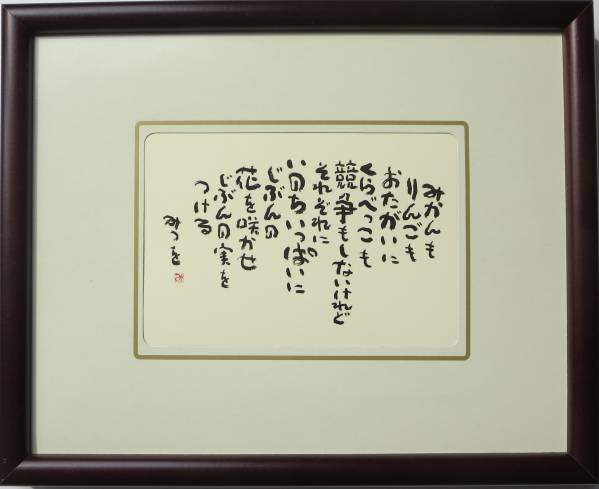 みかんも
りんごも
おたがいに
くらべっこも
競争もしないけれど
それぞれに
いのちいっぱいに
じぶんの
花を咲かせ
じぶんの実を
つける
みつを